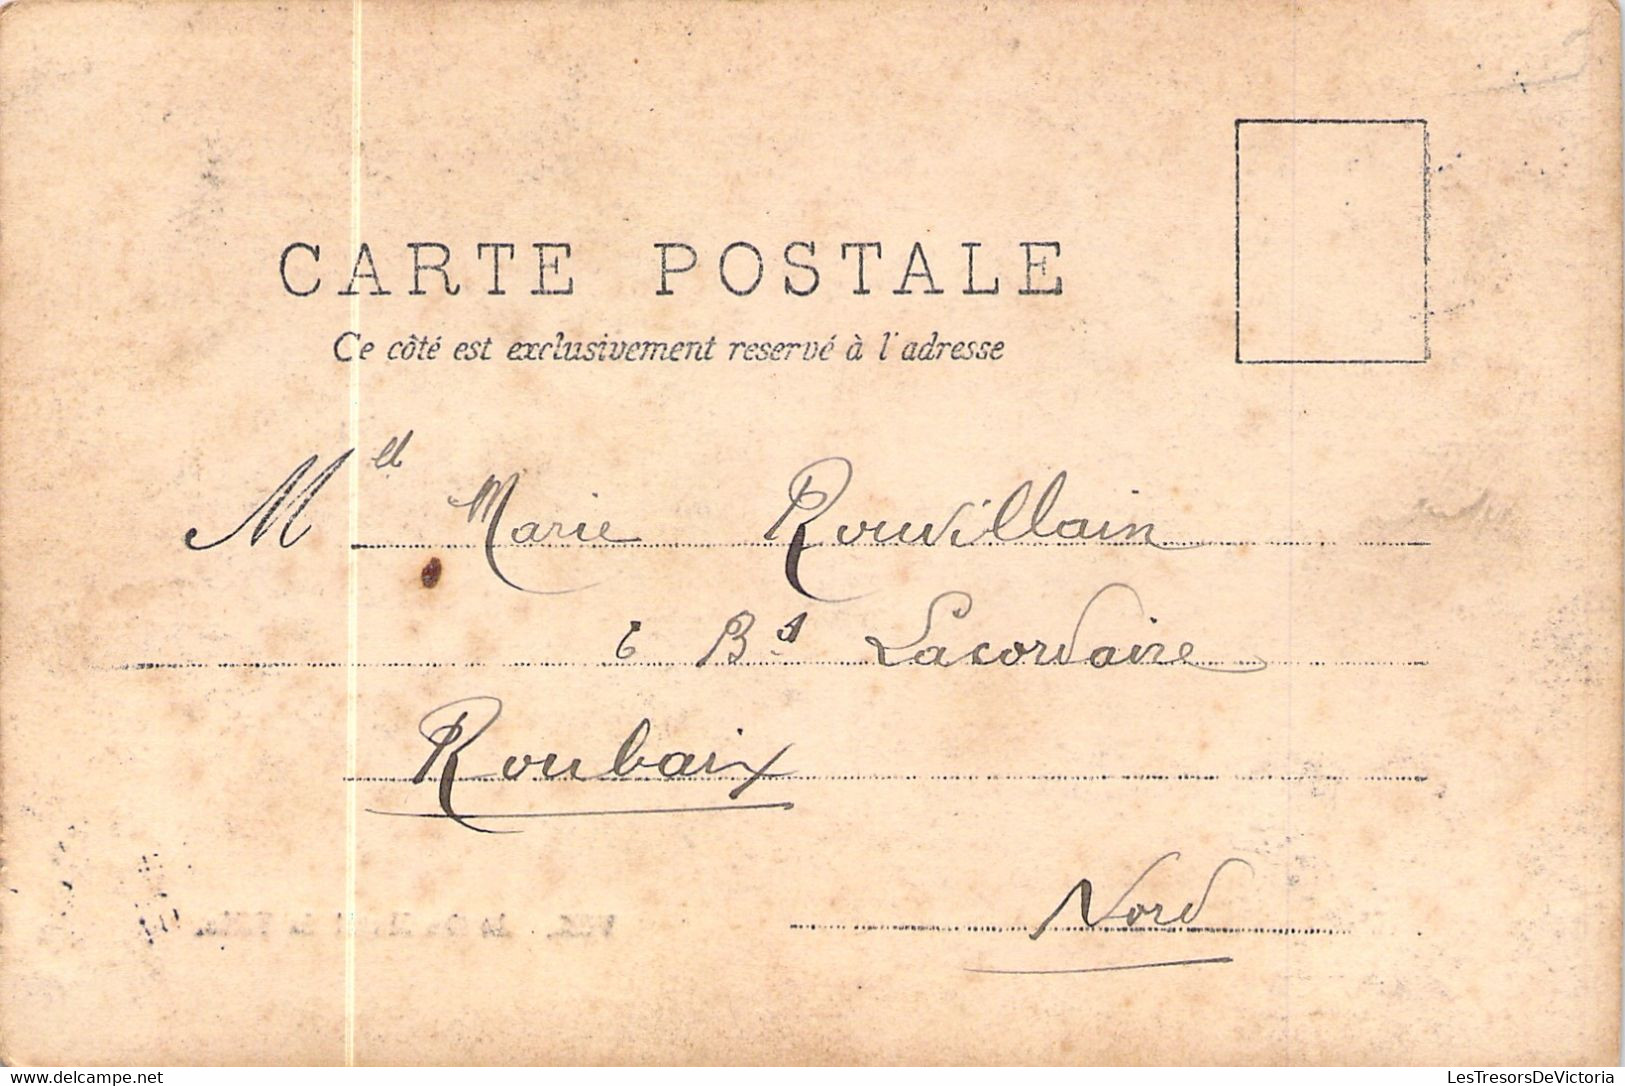 CARTE POSTALE
Ce côté est exclusivement reservé à l'adresse
Mell Marie Rouvillain
6 Bd Lacordaire
Roubaix
Nord
www.delcampe.net
LesTresorsDeVictoria